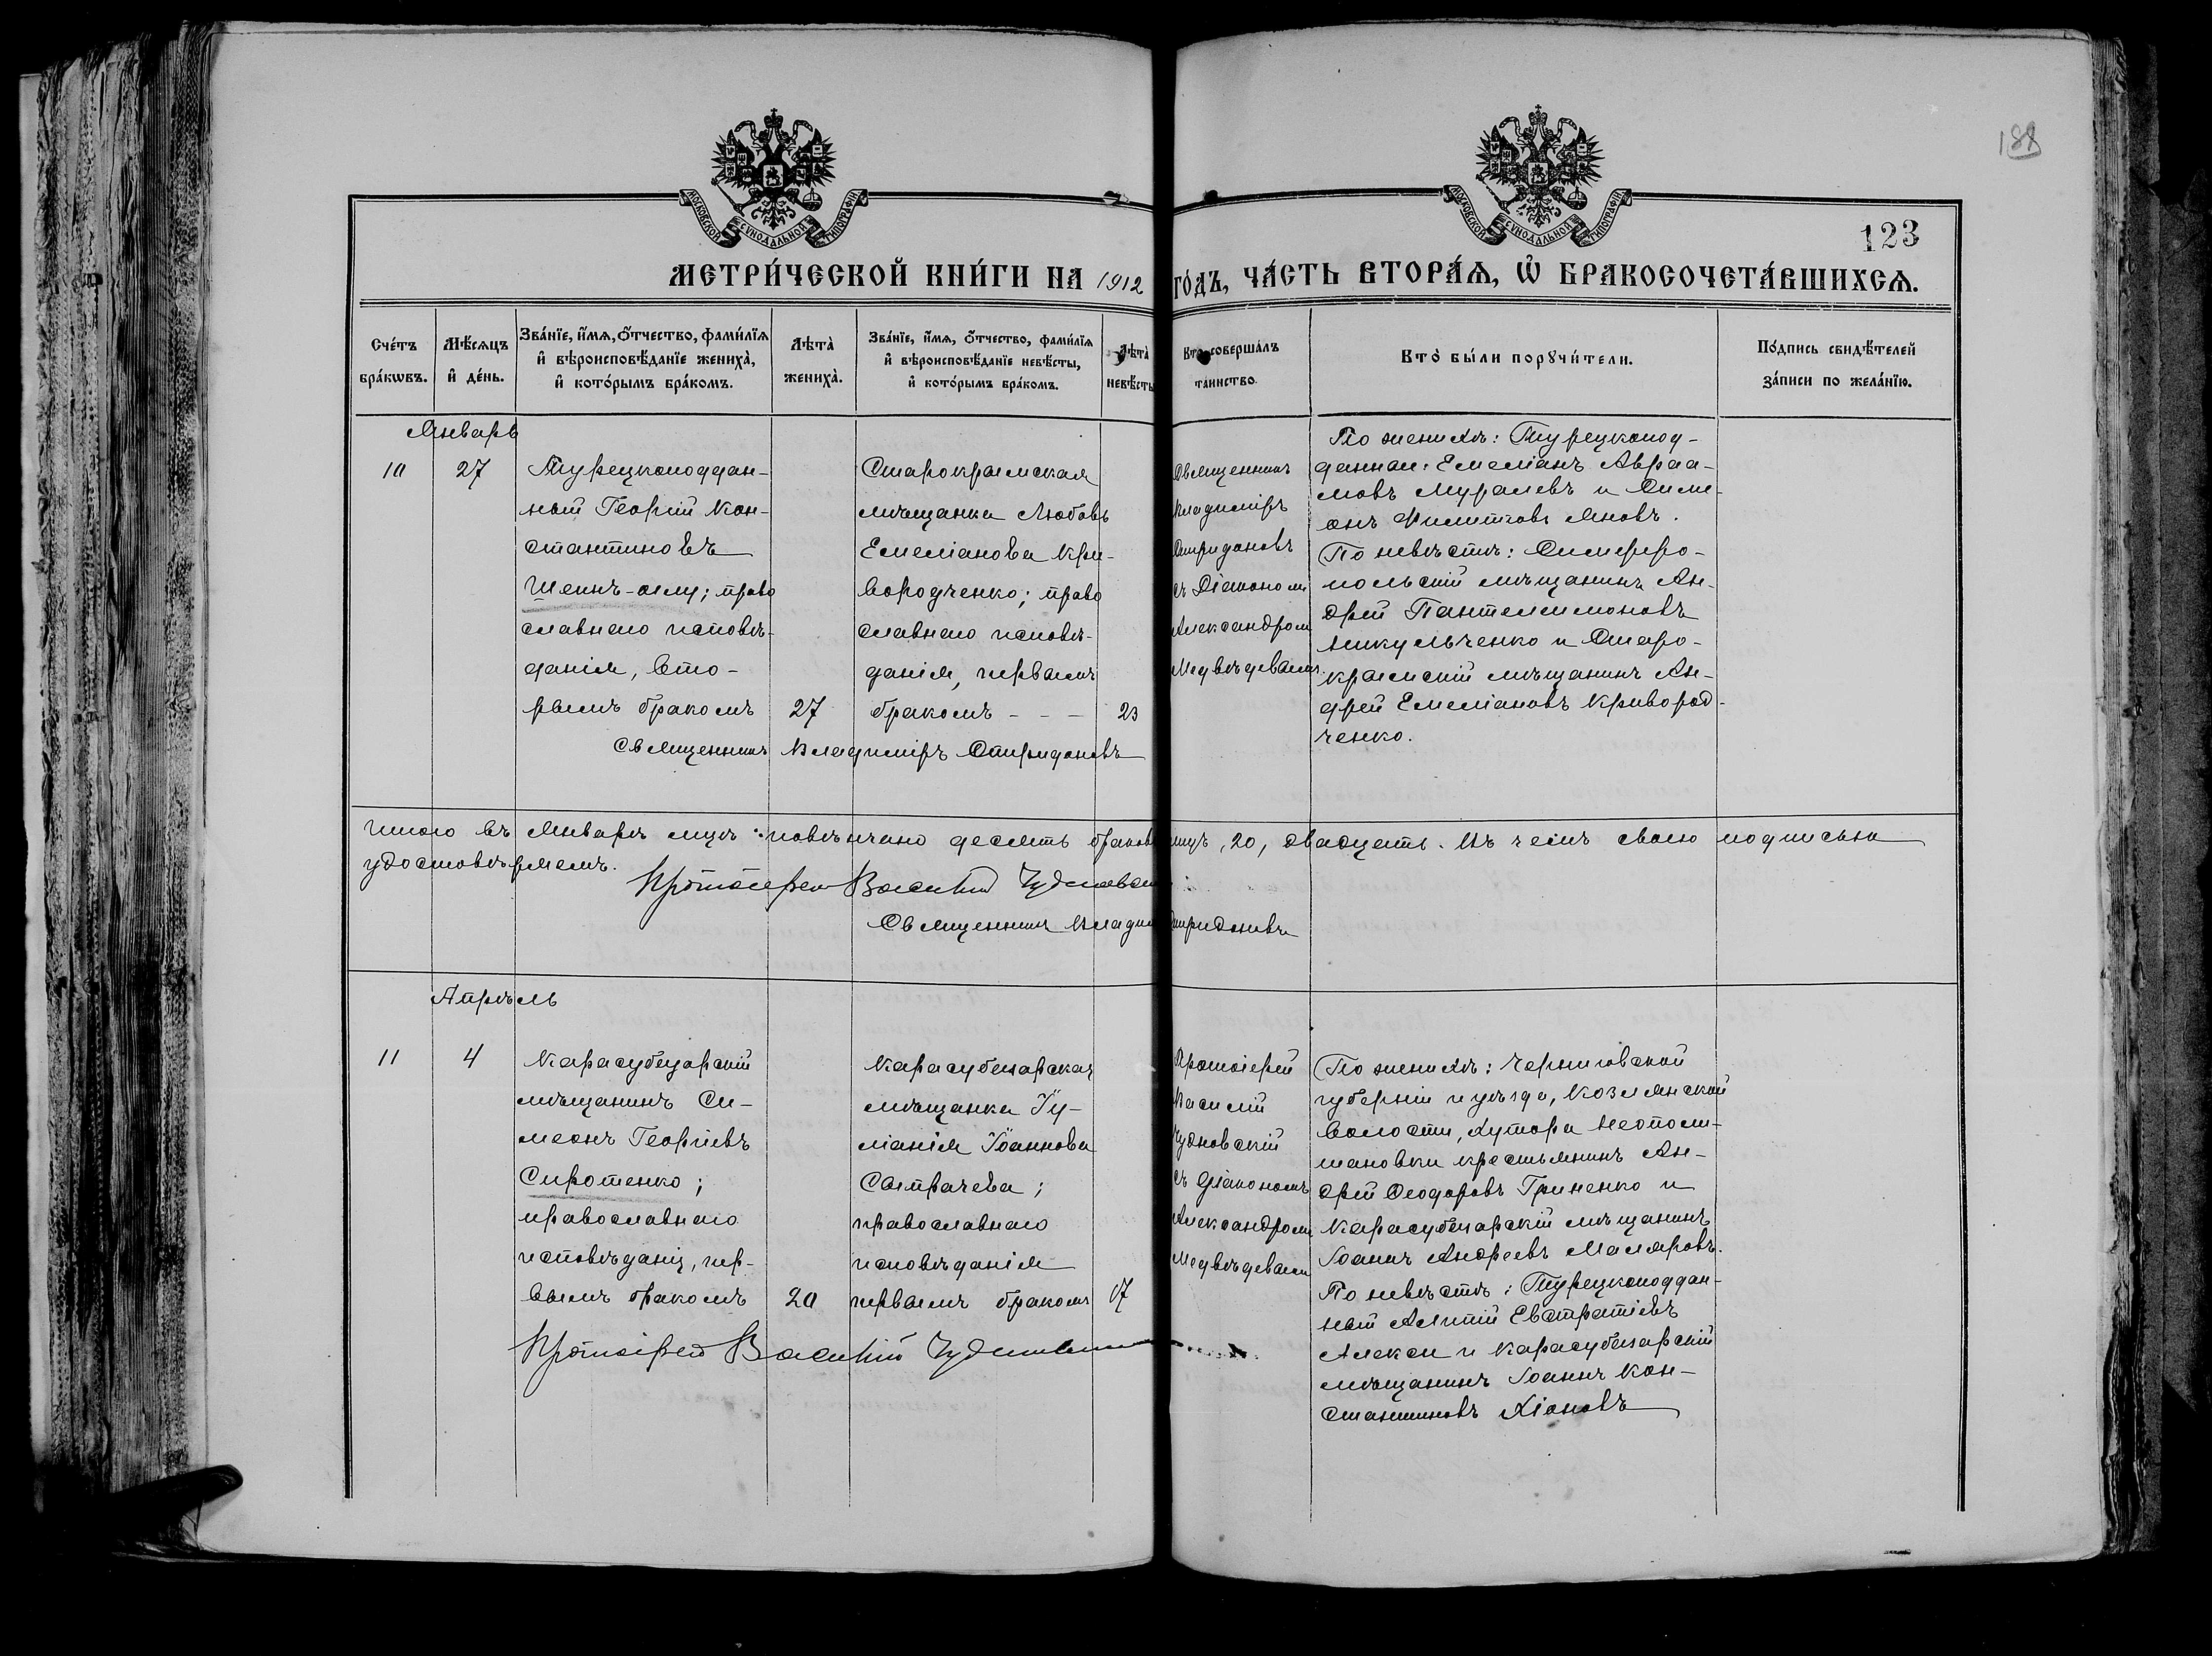 188
МОСКОВСКОЙ СѴНОДАЛЬНОЙ ТИПОГРАФІИ
МОСКОВСКОЙ СѴНОДАЛЬНОЙ ТИПОГРАФІИ
123
МЕТРИ́ЧЕСКОЙ КНИ́ГИ НА 1912 ГО́ДЪ, ЧА́СТЬ ВТОРА́Ѧ, Ѡ҆ БРАКОСОЧЕТА́ВШИХСѦ.
Сче́тъ
бра́кѡвъ.
Мѣ́сѧцъ
и҆ де́нь.
Зва́нїе, и҆́мѧ, ѻ҆́тчество, фами́лїѧ
и҆ вѣроисповѣ́данїе жениха̀,
и҆ кото́рымъ бра́комъ.
Лѣта̀
жениха̀.
Зва́нїе, и҆́мѧ, ѻ҆́тчество, фами́лїѧ
и҆ вѣроисповѣ́данїе невѣ́сты,
и҆ кото́рымъ бра́комъ.
Лѣта̀
невѣ́сты
Кто̀ соверша́лъ
та́инство.
Кто̀ бы́ли порꙋчи́тели.
По́дпись свидѣ́телей
за́писи по жела́нїю.
Январь
10
27
Турецкоподдан-
ный Георгій Кон-
стантиновъ
Шеинъ-оглу; право
славнаго исповѣ-
данія, вто-
рымъ бракомъ
27
Старокрымская
мѣщанка Любовь
Емеліанова Кри-
вородченко; право
славнаго исповѣ-
данія, первымъ
бракомъ - - -
23
Священникъ
Владиміръ
Спиридоновъ
съ Діакономъ
Александромъ
Медвѣдевымъ.
По женихѣ: Турецкопод-
данные: Емеліанъ Авраа-
мовъ Муралевъ и Симе-
онъ Филипповъ Яновъ.
По невѣстѣ: Симферо-
польскій мѣщанинъ Ан-
дрей Пантелеимоновъ
Никульченко и Старо-
крымскій мѣщанинъ Ан-
дрей Емеліановъ Кривород-
ченко.
Священникъ Владиміръ Спиридоновъ
Итого въ Январѣ мцѣ повѣнчано десять браковъ лицъ, 20, двадцать. Въ чемъ своею подписью
удостовѣряемъ.
Протоіерей Василій Чудновскій
Священникъ Владиміръ Спиридоновъ
Апрѣль
11
4
Карасубазарскій
мѣщанинъ Си-
меонъ Георгіевъ
Сиротенко;
православнаго
исповѣданія, пер-
вымъ бракомъ
20
Карасубазарская
мѣщанка Іу-
ліанія Іоаннова
Сыпрачева;
православнаго
исповѣданія
первымъ бракомъ
17
Протоіерей
Василій
Чудновскій
съ діакономъ
Александромъ
Медвѣдевымъ
По женихѣ: Черниговской
губерніи и уѣзда, Козлянской
волости, хутора Неополи-
мановки крестьянинъ Ан-
дрей Ѳеодоровъ Гриненко и
Карасубазарскій мѣщанинъ
Іоаннъ Андреевъ Маляровъ.
По невѣстѣ: Турецкоподдан-
ный Алипій Евстратіевъ
Алекси и Карасубазарскій
мѣщанинъ Іоаннъ Кон-
стантиновъ Хіоновъ
Протоіерей Василій Чудновскій